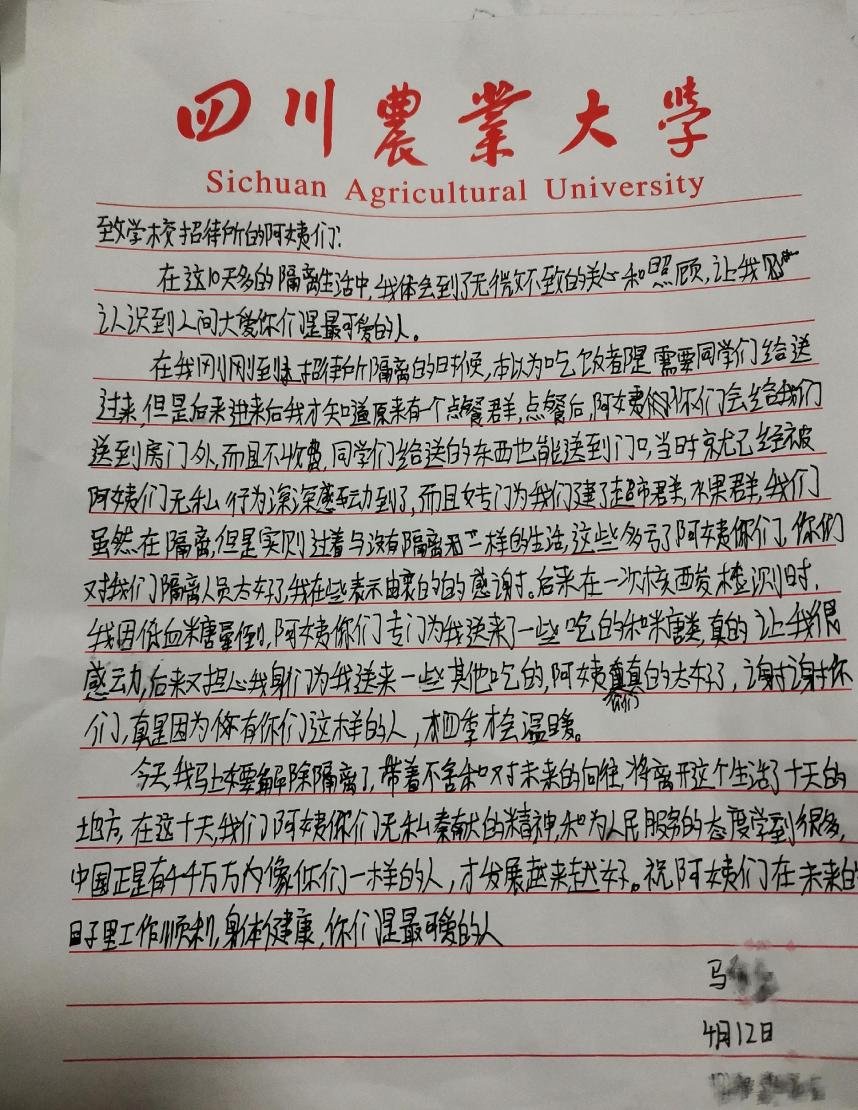 四川農業大學
Sichuan Agricultural University
致学校招待所的阿姨们:
在这10天多的隔离生活中,我体会到了无微不致的关心和照顾,让我
认识到人间大爱你们是最可爱的人。
在我刚刚到招待所隔离的时候,本以为吃饭都是需要同学们给送
过来,但是后来进来后我才知道原来有一个点餐群,点餐后,阿姨你们会给我们
送到房门外,而且不收费,同学们给送的东西也能送到门口,当时就已经被
阿姨们无私行为深深感动到了,而且专门为我们建了超市群,水果群,我们
虽然在隔离,但是实则过着与没有隔离无二样的生活,这些多亏了阿姨你们,你们
对我们隔离人员太好了,我在些表示由衷的的感谢。后来在一次核酸检测时,
我因低血糖晕倒,阿姨你们专门为我送来了一些吃的和糖类,真的让我很
感动,后来又担心我身们为我送来一些其他吃的,阿姨你们真的太好了,谢谢谢谢你
们,真是因为有你们这样的人,四季才会温暖。
今天,我马上要解除隔离了,带着不舍和对未来的向往,将离开这个生活了十天的
地方,在这十天,我们阿姨你们无私奉献的精神,和为人民服务的态度学到很多,
中国正是有千千万万内像你们一样的人,才发展越来越好。祝阿姨们在未来的
日子里工作顺利,身体健康,你们是最可爱的人
马
4月12日